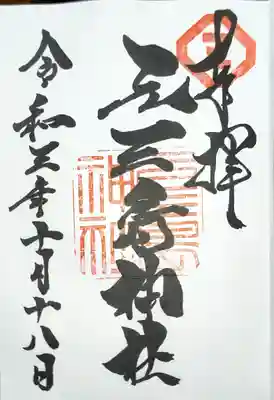 奉拝
元三島神社
令和三年十月十八日